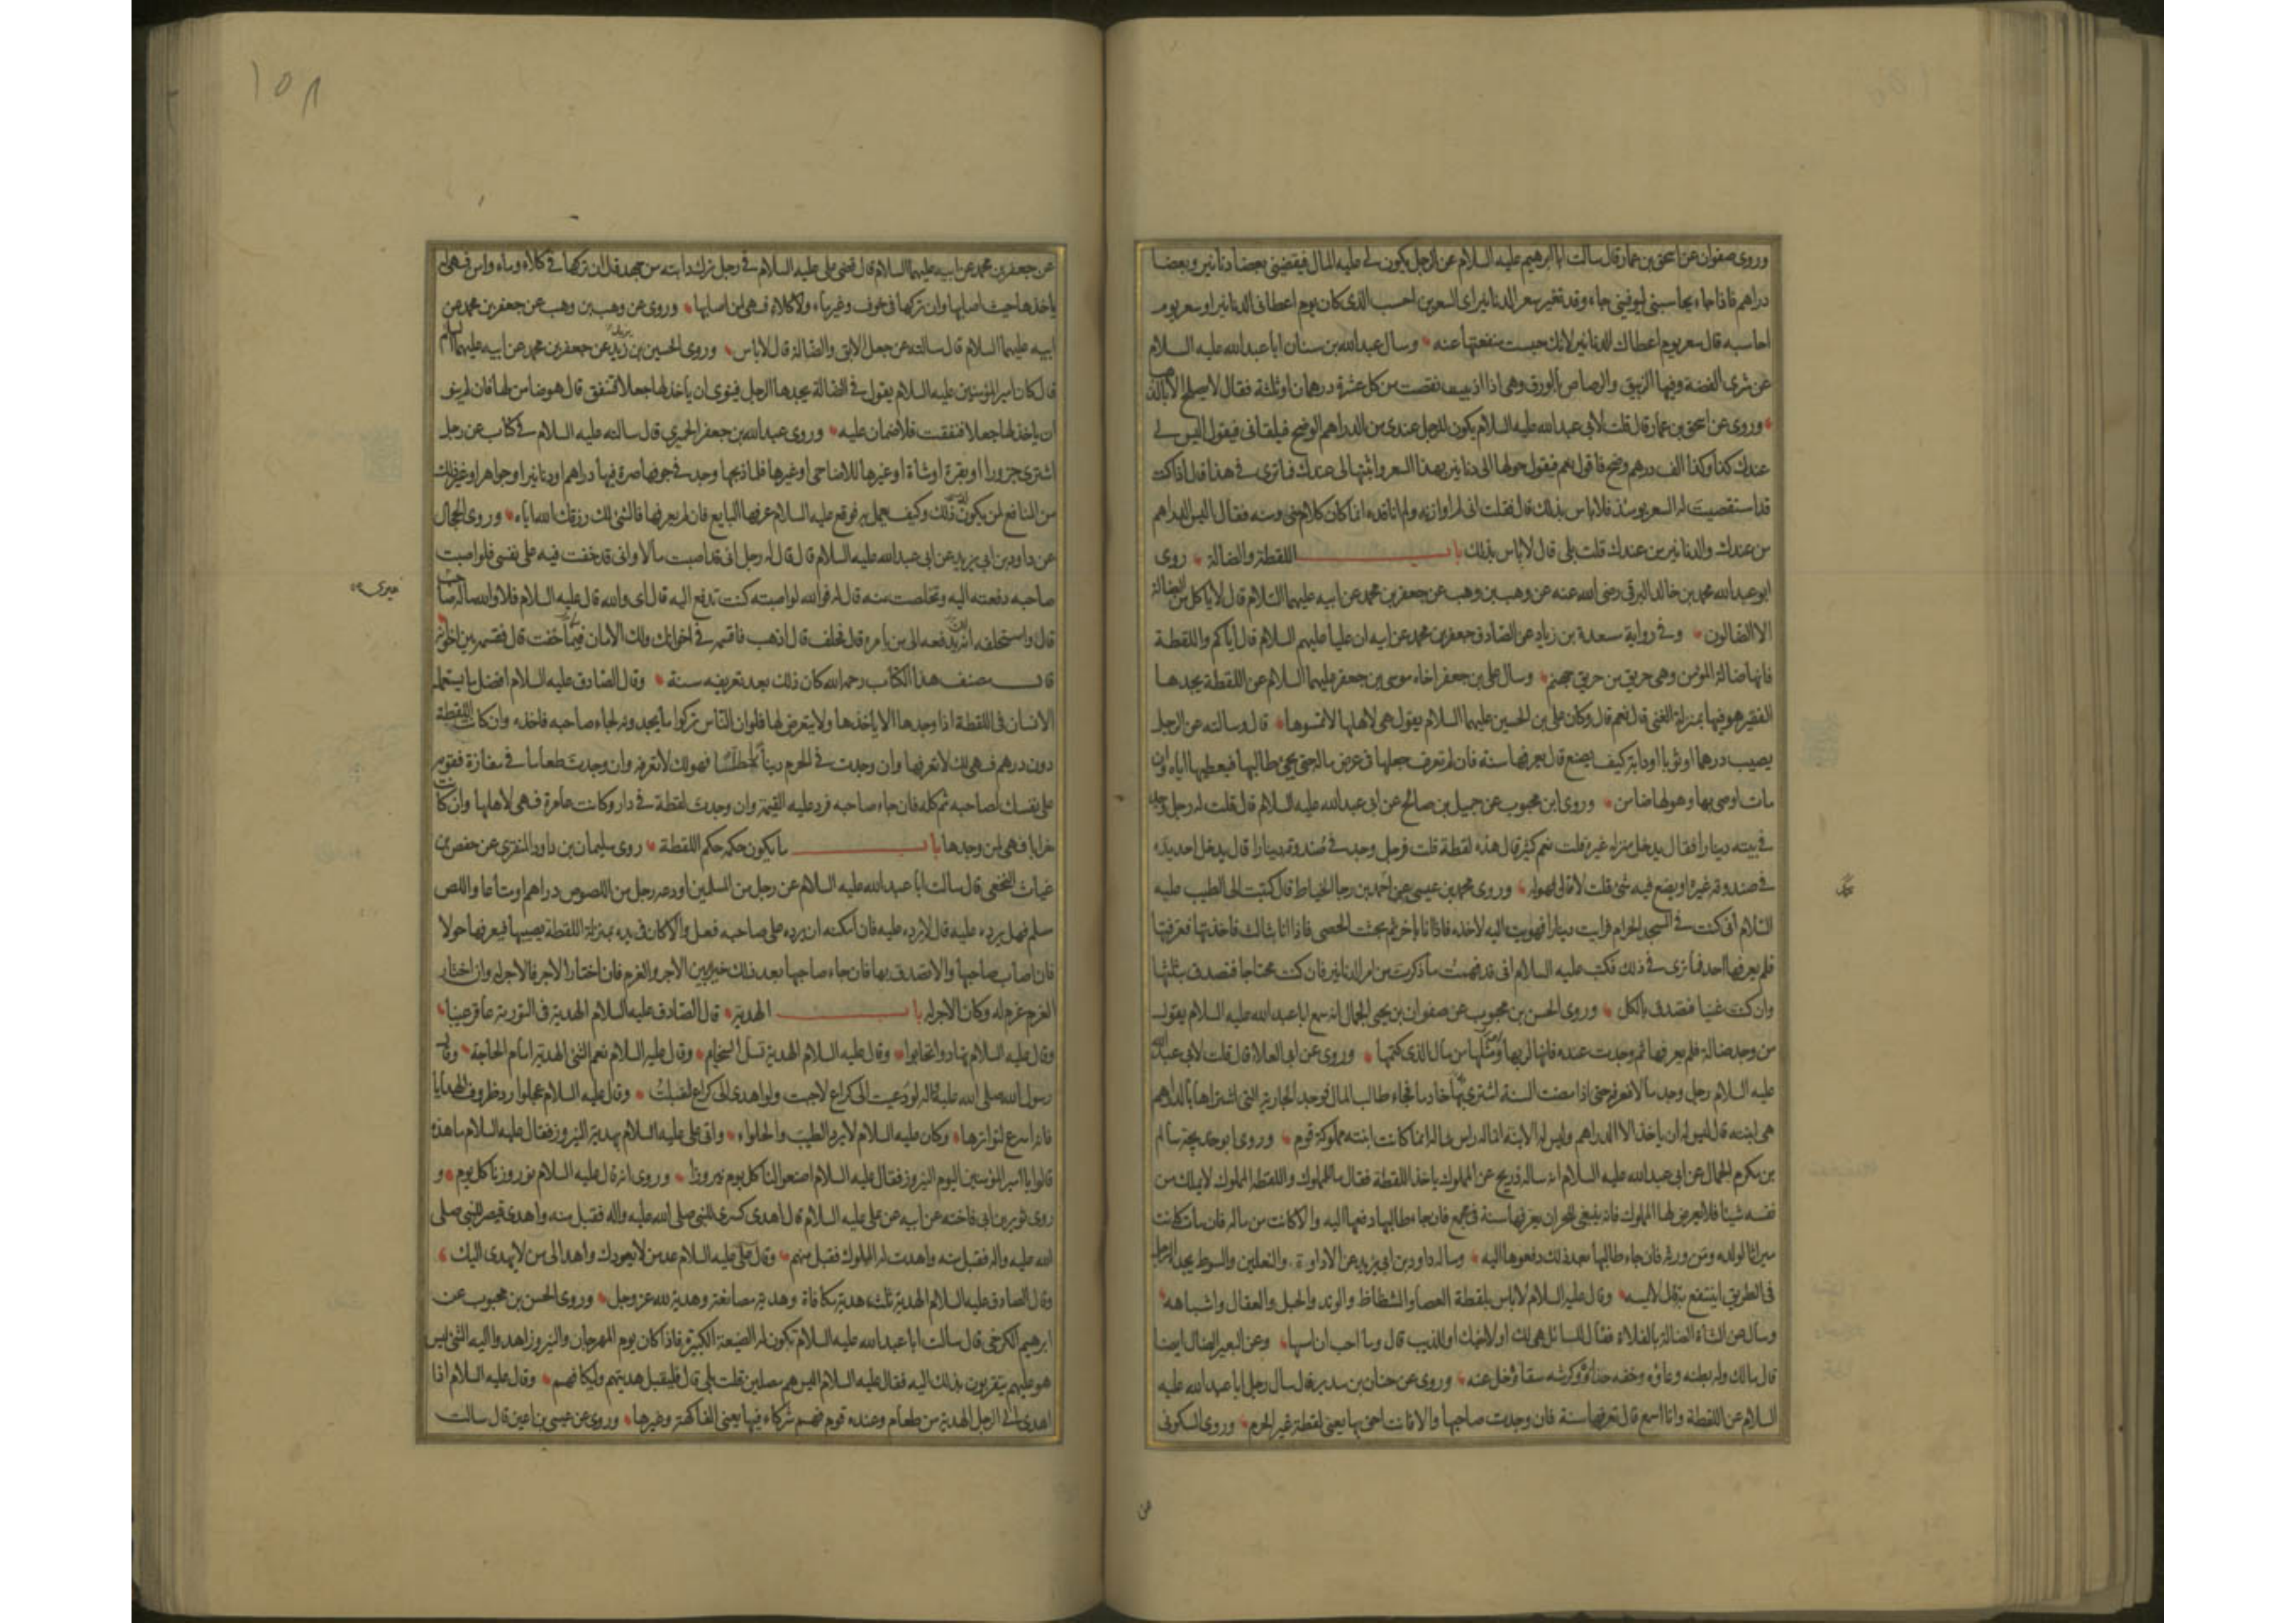 وروى صفوان عن اسحق بن عمار قال سالت ابا ابرهيم عليه السلام عن الرجل يكون لى عليه المال فيقضينى بعضا دنانير وبعضا
دراهم فاذا جاء يحاسبنى ليوفينى جاء وقد تغير سعر الدنانير اى السعرين احسب الذى كان يوم اعطانى الدنانير او سعر يوم
احاسبه قال سعر يوم اعطاك الدنانير لانك حبست منفعتها عنه وسال عبدالله بن سنان ابا عبدالله عليه السلام
عن شرى الفضة وفيها الزيبق والرصاص بالورق وهى اذا اذيبت نقصت من كل عشرة درهمان او ثلثة فقال لا يصلح الا بالذهب
وروى عن اسحق بن عمار قال قلت لابى عبدالله عليه السلام يكون للرجل عندى من الدراهم الوضح فيلقانى فيقول اليس لى
عندك كذا وكذا الف درهم وضح فاقول نعم فيقول حولها الى دنانير بهذا السعر واثبتها لى عندك فما ترى فى هذا قال اذا كنت
قد استقصيت له السعر يومئذ فلا باس بذلك قال فقلت انى لم اوازنه ولم اناقده انما كان كلام منى ومنه فقال اليس الدراهم
من عندك والدنانير من عندك قلت بلى قال لا باس بذلك باب اللقطة والضالة روى
ابو عبدالله محمد بن خالد البرقى رضى الله عنه عن وهب بن وهب عن جعفر بن محمد عن ابيه عليهما السلام قال لا ياكل من الضالة
الا الضالون وفى رواية مسعدة بن زياد عن الصادق جعفر بن محمد عن ابيه ان عليا عليهم السلام قال اياكم واللقطة
فانها ضالة المؤمن وهى حريق من حريق جهنم وسال على بن جعفر اخاه موسى بن جعفر عليهما السلام عن اللقطة يجدها
الفقير هو فيها بمنزلة الغنى قال نعم قال وكان على بن الحسين عليهما السلام يقول هى لاهلها لا تمسوها قال وسالته عن الرجل
يصيب درهما او ثوبا او دابة كيف يصنع قال يعرفها سنة فان لم تعرف جعلها فى عرض ماله حتى يجئ طالبها فيعطيها اياه وان
مات اوصى بها وهو لها ضامن وروى ابن محبوب عن جميل بن صالح عن ابى عبدالله عليه السلام قال قلت له رجل وجد
فى بيته دينارا فقال يدخل منزله غيره قلت نعم كثير قال هذه لقطة قلت فرجل وجد فى صندوقه دينارا قال يدخل احد يده
فى صندوقه غيره او يضع فيه شئ قلت لا قال فهو له وروى محمد بن عيسى عن احمد بن رجا الخياط قال كتبت الى الطيب عليه
السلام انى كنت فى المسجد الحرام فرايت دينارا فهويت اليه لاخذه فاذا انا باخر ثم بحثت الحصى فاذا انا بثالث فاخذتها فعرفتها
فلم يعرفها احد فما ترى فى ذلك فكتب عليه السلام انى قد فهمت ما ذكرت من امر الدنانير فان كنت محتاجا فتصدق بثلثها
وان كنت غنيا فتصدق بالكل وروى الحسن بن محبوب عن صفوان بن يحيى الجمال انه سمع ابا عبدالله عليه السلام يقول
من وجد ضالة فلم يعرفها ثم وجدت عنده فانها لربها ومثلها من مال الذى كتمها وروى عن ابى العلا قال قلت لابى عبدالله
عليه السلام رجل وجد مالا فعرفه حتى اذا مضت السنة اشترى بها خادما فجاء طالب المال فوجد الجارية التى اشتراها بالدراهم
هى ابنته قال ليس له ان ياخذ الا الدراهم وليس له الابنة انما له راس ماله انما كانت ابنته مملوكة قوم وروى ابو خديجة سالم
بن مكرم الجمال عن ابى عبدالله عليه السلام انه ساله ذريح عن المملوك ياخذ اللقطة فقال ما للمملوك واللقطة المملوك لا يملك من
نفسه شيئا فلا يعرض لها المملوك فانه ينبغى للحر ان يعرفها سنة فى مجمع فان جاء طالبها دفعها اليه والا كانت من ماله فان مات كانت
ميراثا لولده ومن ورثه فان جاء طالبها بعد ذلك دفعوها اليه وساله داود بن ابى يزيد عن الاداوة والنعلين والسوط يجد الرجل
فى الطريق اينتفع به قال لا يمسه وقال عليه السلام لا باس بلقطة العصا والشظاظ والوتد والحبل والعقال واشباهه
وسال عن الشاة الضالة بالفلاة فقال للسائل هى لك او لاخيك او للذيب قال وما احب ان امسها وعن البعير الضال ايضا
قال مالك وله بطنه وعاؤه وخفه حذاؤه وكرشه سقاؤه خل عنه وروى عن حنان بن سدير قال سال رجل ابا عبدالله عليه
السلام عن اللقطة وانا اسمع قال تعرفها سنة فان وجدت صاحبها والا فانت احق بها يعنى لقطة غير الحرم وروى السكونى
عن
١٥٨
عن جعفر بن محمد عن ابيه عليهما السلام قال قضى على عليه السلام فى رجل ترك دابته من جهد قال ان تركها فى كلاء وماء وامن فهى له
ياخذها حيث اصابها وان تركها فى خوف وغير ماء ولا كلاء فهى لمن اصابها وروى عن وهب بن وهب عن جعفر بن محمد عن
ابيه عليهما السلام قال سالته عن جعل الابق والضالة قال لا باس وروى الحسين بن زيد عن جعفر بن محمد عن ابيه عليهما السلام
قال كان امير المؤمنين عليه السلام يقول فى الضالة يجدها الرجل فينوى ان ياخذ لها جعلا فتنفق قال هو ضامن لها فان لم ينو
ان ياخذ لها جعلا فنفقت فلا ضمان عليه وروى عبدالله بن جعفر الحميرى قال سالته عليه السلام فى كتاب عن رجل
اشترى جزورا او بقرة او شاة او غيرها للاضاحى او غيرها فلما ذبحها وجد فى جوفها صرة فيها دراهم او دنانير او جواهر او غير ذلك
من المنافع لمن يكون ذلك وكيف يعمل به فوقع عليه السلام عرفها البايع فان لم يعرفها فالشئ لك رزقك الله اياه وروى الحجال
عن داود بن ابى يزيد عن ابى عبدالله عليه السلام قال قال له رجل انى قد اصبت مالا وانى قد خفت فيه على نفسى فلو اصبت
صاحبه دفعته اليه وتخلصت منه قال له فوالله لو اصبته كنت تدفع اليه قال اى والله قال عليه السلام فلا والله ما له صاحب
قال واستحلفه ان يدفعه الى من يامره قال فحلف قال اذهب فاقسمه فى اخوانك ولك الامان فيما خفت قال فقسمه بين اخوانه
قال مصنف هذا الكتاب رحمه الله كان ذلك بعد تعريفه سنة وقال الصادق عليه السلام افضل ما يستعمله
الانسان فى اللقطة اذا وجدها الا ياخذها ولا يتعرض لها فلو ان الناس تركوا ما يجدونه لجاء صاحبه فاخذه وان كانت اللقطة
دون درهم فهى لك لا تعرفها وان وجدت فى الحرم دينارا مطلسا فهو لك لا تعرفه وان وجدت طعاما فى مفازة فقومه
على نفسك لصاحبه ثم كله فان جاء صاحبه فرد عليه القيمة وان وجدت لقطة فى دار وكانت عامرة فهى لاهلها وان كانت
خرابا فهى لمن وجدها باب ما يكون حكمه حكم اللقطة روى سليمان بن داود المنقرى عن حفص بن
غياث النخعى قال سالت ابا عبدالله عليه السلام عن رجل من المسلمين اودعه رجل من اللصوص دراهم او متاعا واللص
مسلم فهل يرد عليه قال لا يرده عليه فان امكنه ان يرده على صاحبه فعل والا كان فى يده بمنزلة اللقطة يصيبها فيعرفها حولا
فان اصاب صاحبها والا تصدق بها فان جاء صاحبها بعد ذلك خيره بين الاجر والغرم فان اختار الاجر فالاجر له وان اختار
الغرم غرم له وكان الاجر له باب الهدية قال الصادق عليه السلام الهدية فى التورية عافر عينا
وقال عليه السلام تهادوا تحابوا وقال عليه السلام الهدية تسل السخايم وقال عليه السلام نعم الشئ الهدية امام الحاجة وقال
رسول الله صلى الله عليه وآله لو دعيت الى كراع لاجبت ولو اهدى الى كراع لقبلت وقال عليه السلام عجلوا رد ظروف الهدايا
فانه اسرع لتواترها وكان عليه السلام لا يرد الطيب والحلواء واتى على عليه السلام بهدية النيروز فقال عليه السلام ما هذه
قالوا يا امير المؤمنين اليوم النيروز فقال عليه السلام اصنعوا لنا كل يوم نيروزا وروى انه قال عليه السلام نوروزنا كل يوم و
روى ثوير بن ابى فاخته عن ابيه عن على عليه السلام قال اهدى كسرى للنبى صلى الله عليه واله فقبل منه واهدى قيصر للنبى صلى
الله عليه واله فقبل منه واهدت له الملوك فقبل منهم وقال على عليه السلام عد من لا يعودك واهد الى من لا يهدى اليك
وقال الصادق عليه السلام الهدية ثلث هدية مكافاة وهدية مصانعة وهدية لله عز وجل وروى الحسن بن محبوب عن
ابرهيم الكرخى قال سالت ابا عبدالله عليه السلام تكون له الضيعة الكبيرة فاذا كان يوم المهرجان والنيروز اهدوا اليه الشئ ليس
هو عليهم يتقربون بذلك اليه فقال عليه السلام اليس هم مصلين قلت بلى قال فليقبل هديتهم وليكافهم وقال عليه السلام اذا
اهدى الى الرجل الهدية من طعام وعنده قوم فهم شركاء فيها يعنى الفاكهة وغيرها وروى عن عيسى بن اعين قال سالت